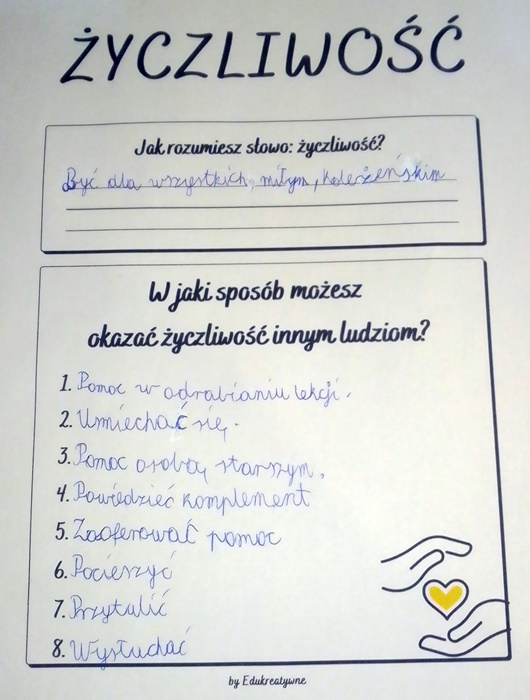 ŻYCZLIWOŚĆ
Jak rozumiesz słowo: życzliwość?
Być dla wszystkich, miłym, koleżeńskim
W jaki sposób możesz
okazać życzliwość innym ludziom?
1. Pomoc w odrabianiu lekcji.
2. Umiechać się.
3. Pomoc osobą starszym.
4. Powiedzieć komplement
5. Zaoferować pomoc
6. Pocieszyć
7. Przytulić
8. Wysłuchać
by Edukreatywne